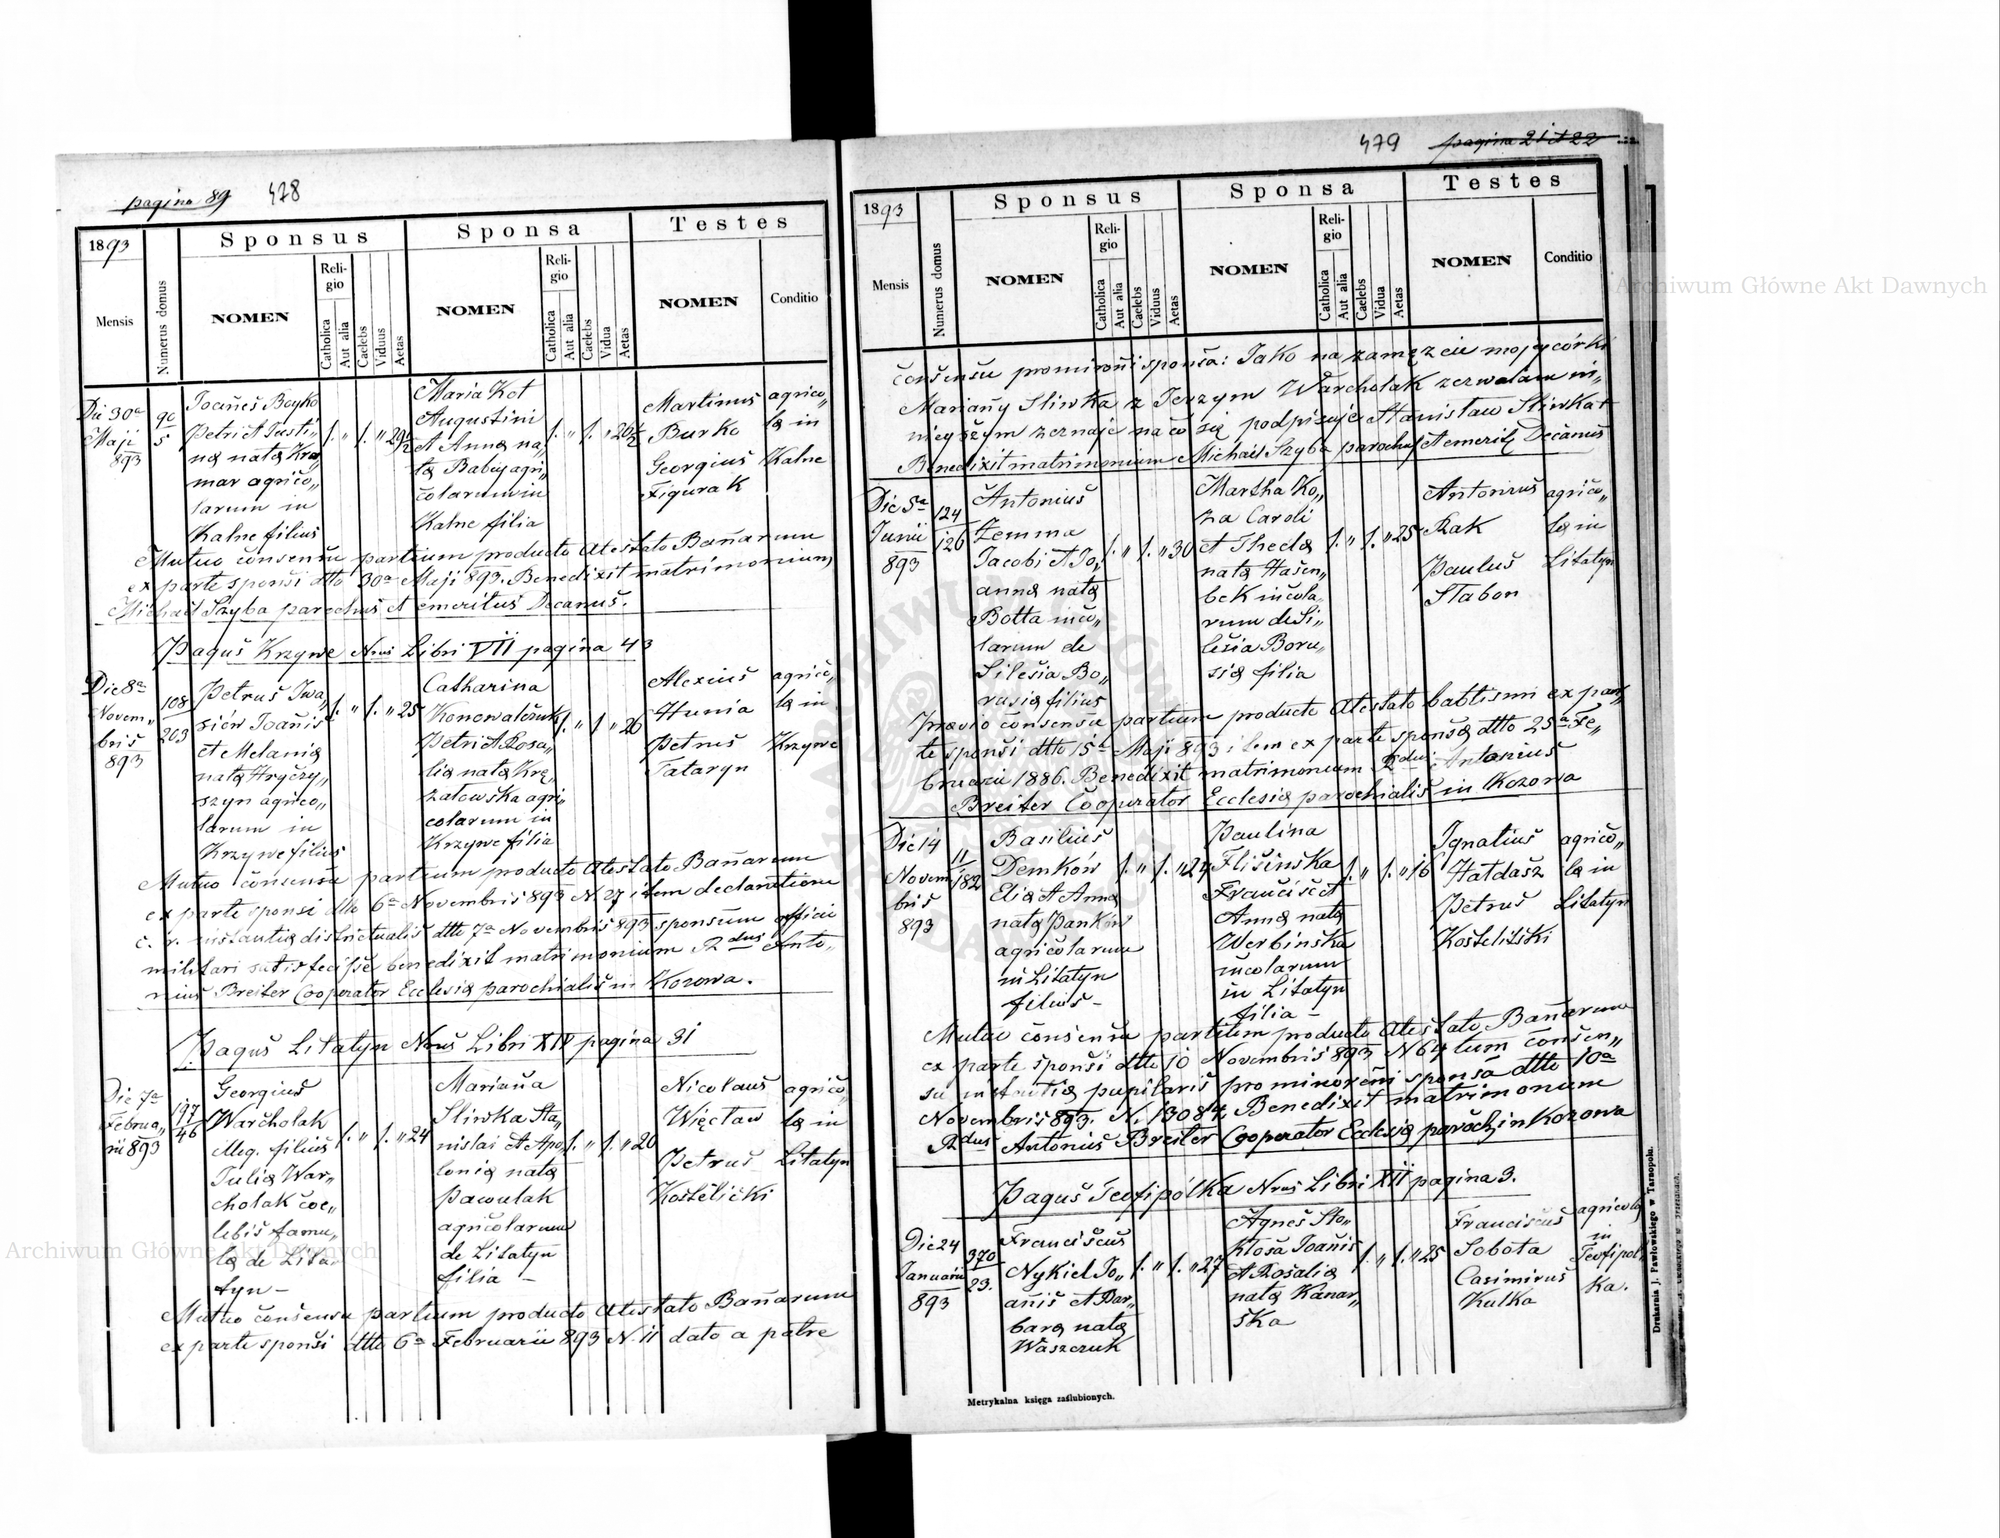 pagina 89 478
1893
Mensis
Numerus domus
Sponsus
NOMEN
Religio
Catholica
Aut alia
Caelebs
Viduus
Aetas
Sponsa
NOMEN
Religio
Catholica
Aut alia
Caelebs
Vidua
Aetas
Testes
NOMEN
Conditio
Die 30a
Maji
893
90
5
Joañes Boyko
Petri et Justi„
nę natę Kra„
mar agrico„
larum in
Kalne filius
1. „ 1. „ 29½
Maria Kot
Augustini
et Annę na„
tę Babij agri„
colarum in
Kalne filia
1. „ 1. „ 20½
Martinus
Burko
Georgius
Figurak
agrico„
lę in
Kalne
Mutuo consensu partium producto Atestato Bañarum
ex parte sponsi dtto 30a Maji 893. Benedixit matrimonium
Michaël Szyba parochus et emeritus Decanus.
Pagus Krzywe Nrus Libri VII pagina 43
Die 8a
Novem„
bris
893
108
203
Petrus Iwa„
siów Joañis
et Melanię
natę Hryczy„
szyn agrico„
larum in
Krzywe filius
1. „ 1. „ 25
Catharina
Konowalczuk
Petri et Rosa„
lię natę Krę„
załowska agri„
colarum in
Krzywe filia
1. „ 1. „ 26
Alexius
Hunia
Petrus
Tataryn
agrico„
lę in
Krzywe
Mutuo consensu partium producto Atestato Bañarum
ex parte sponsi dtto 6a Novembris 893 N. 27 item declaratione
c. r. instantię districtualis dtto 7a Novembris 893 sponsum officii
militari satisfecisse benedixit matrimonium Rdus Anto„
nius Breiter Cooperator Ecclesię parochialis in Kozowa.
Pagus Litatyn Nrus Libri XIV pagina 31
Die 7a
Februa„
rii 893
197
46
Georgius
Warchołak
illeg. filius
Julię War„
chołak coe„
lebis famu„
lę de Lita„
tyn –
1. „ 1. „ 24
Mariaña
Sliwka Sta„
nislai et Apo„
lonię natę
Pawulak
agricolarum
de Litatyn
filia –
1. „ 1. „ 20
Nicolaus
Więcław
Petrus
Kostelicki
agrico„
lę in
Litatyn
Mutuo consensu partium producto Atestato Bañarum
ex parte sponsi dtto 6a Februarii 893 N. 11 dato a patre
479 pagina 21 et 22
1893
Mensis
Numerus domus
Sponsus
NOMEN
Religio
Catholica
Aut alia
Caelebs
Viduus
Aetas
Sponsa
NOMEN
Religio
Catholica
Aut alia
Caelebs
Vidua
Aetas
Testes
NOMEN
Conditio
consensu pro minoreñi sponsa: Jako na zamęzcie mojej córki
Mariañy Sliwka z Jerzym Warchołak zezwalam ni„
niejszym zeznaję na co się podpisuję Stanisław Sliwka +
Benedixit matrimonium Michaël Szyba parochus et emerit. Decanus
Die 5a
Junii
893
124
126
Antonius
Zemma
Jacobi et Jo„
annę natę
Botta inco„
larum de
Silesia Bo„
rusię filius
1. „ 1. „ 30
Martha Ko„
za Caroli
et Theclę
natę Hasen„
bek incola„
rum de Si„
lesia Boru„
się filia
1. „ 1. „ 25
Antonius
Rak
Paulus
Stabon
agrico„
lę in
Litatyn
Praevio consensu partium producto Atestato babtismi ex par„
te sponsi dtto 15a Maji 893 item ex parte sponsę dtto 25a Fe„
bruarii 1886. Benedixit matrimonium Rdus Antonius
Breiter Cooperator Ecclesię parochialis in Kozowa
Die 14
Novem
bris
893
11
182
Basilius
Demków
Elię et Annę
natę Pańków
agricolarum
in Litatyn
filius –
1. „ 1. „ 24
Paulina
Flisinska
Francisci et
Annę natę
Werbinska
incolarum
in Litatyn
filia –
1. „ 1. „ 16
Ignatius
Hałdasz
Petrus
Kostelitski
agrico„
lę in
Litatyn
Mutuo consensu partium producto Atestato Bañarum
ex parte sponsi dtto 10 Novembris 893 N 64 tum consen„
su instantię pupilaris pro minoreñi sponsa dtto 10a
Novembris 893. N. 13084. Benedixit matrimonium
Rdus Antonius Breiter Cooperator Ecclesię paroch. in Kozowa
Pagus Teofipólka Nrus Libri XII pagina 3.
Die 24
Januarii
893
370
23.
Franciscus
Nykiel Jo„
añis et Bar„
barę natę
Waszczuk
1. „ 1. „ 27
Agnes Sto„
kłosa Joañis
et Rosalię
natę Kanar„
ska
1. „ 1. „ 25
Franciscus
Sobota
Casimirus
Kulka
agricolę
in
Teofipol„
ka.
Metrykalna księga zaślubionych.
Drukarnia J. Pawłowskiego w Tarnopolu.
Archiwum Główne Akt Dawnych
Archiwum Główne Akt Dawnych